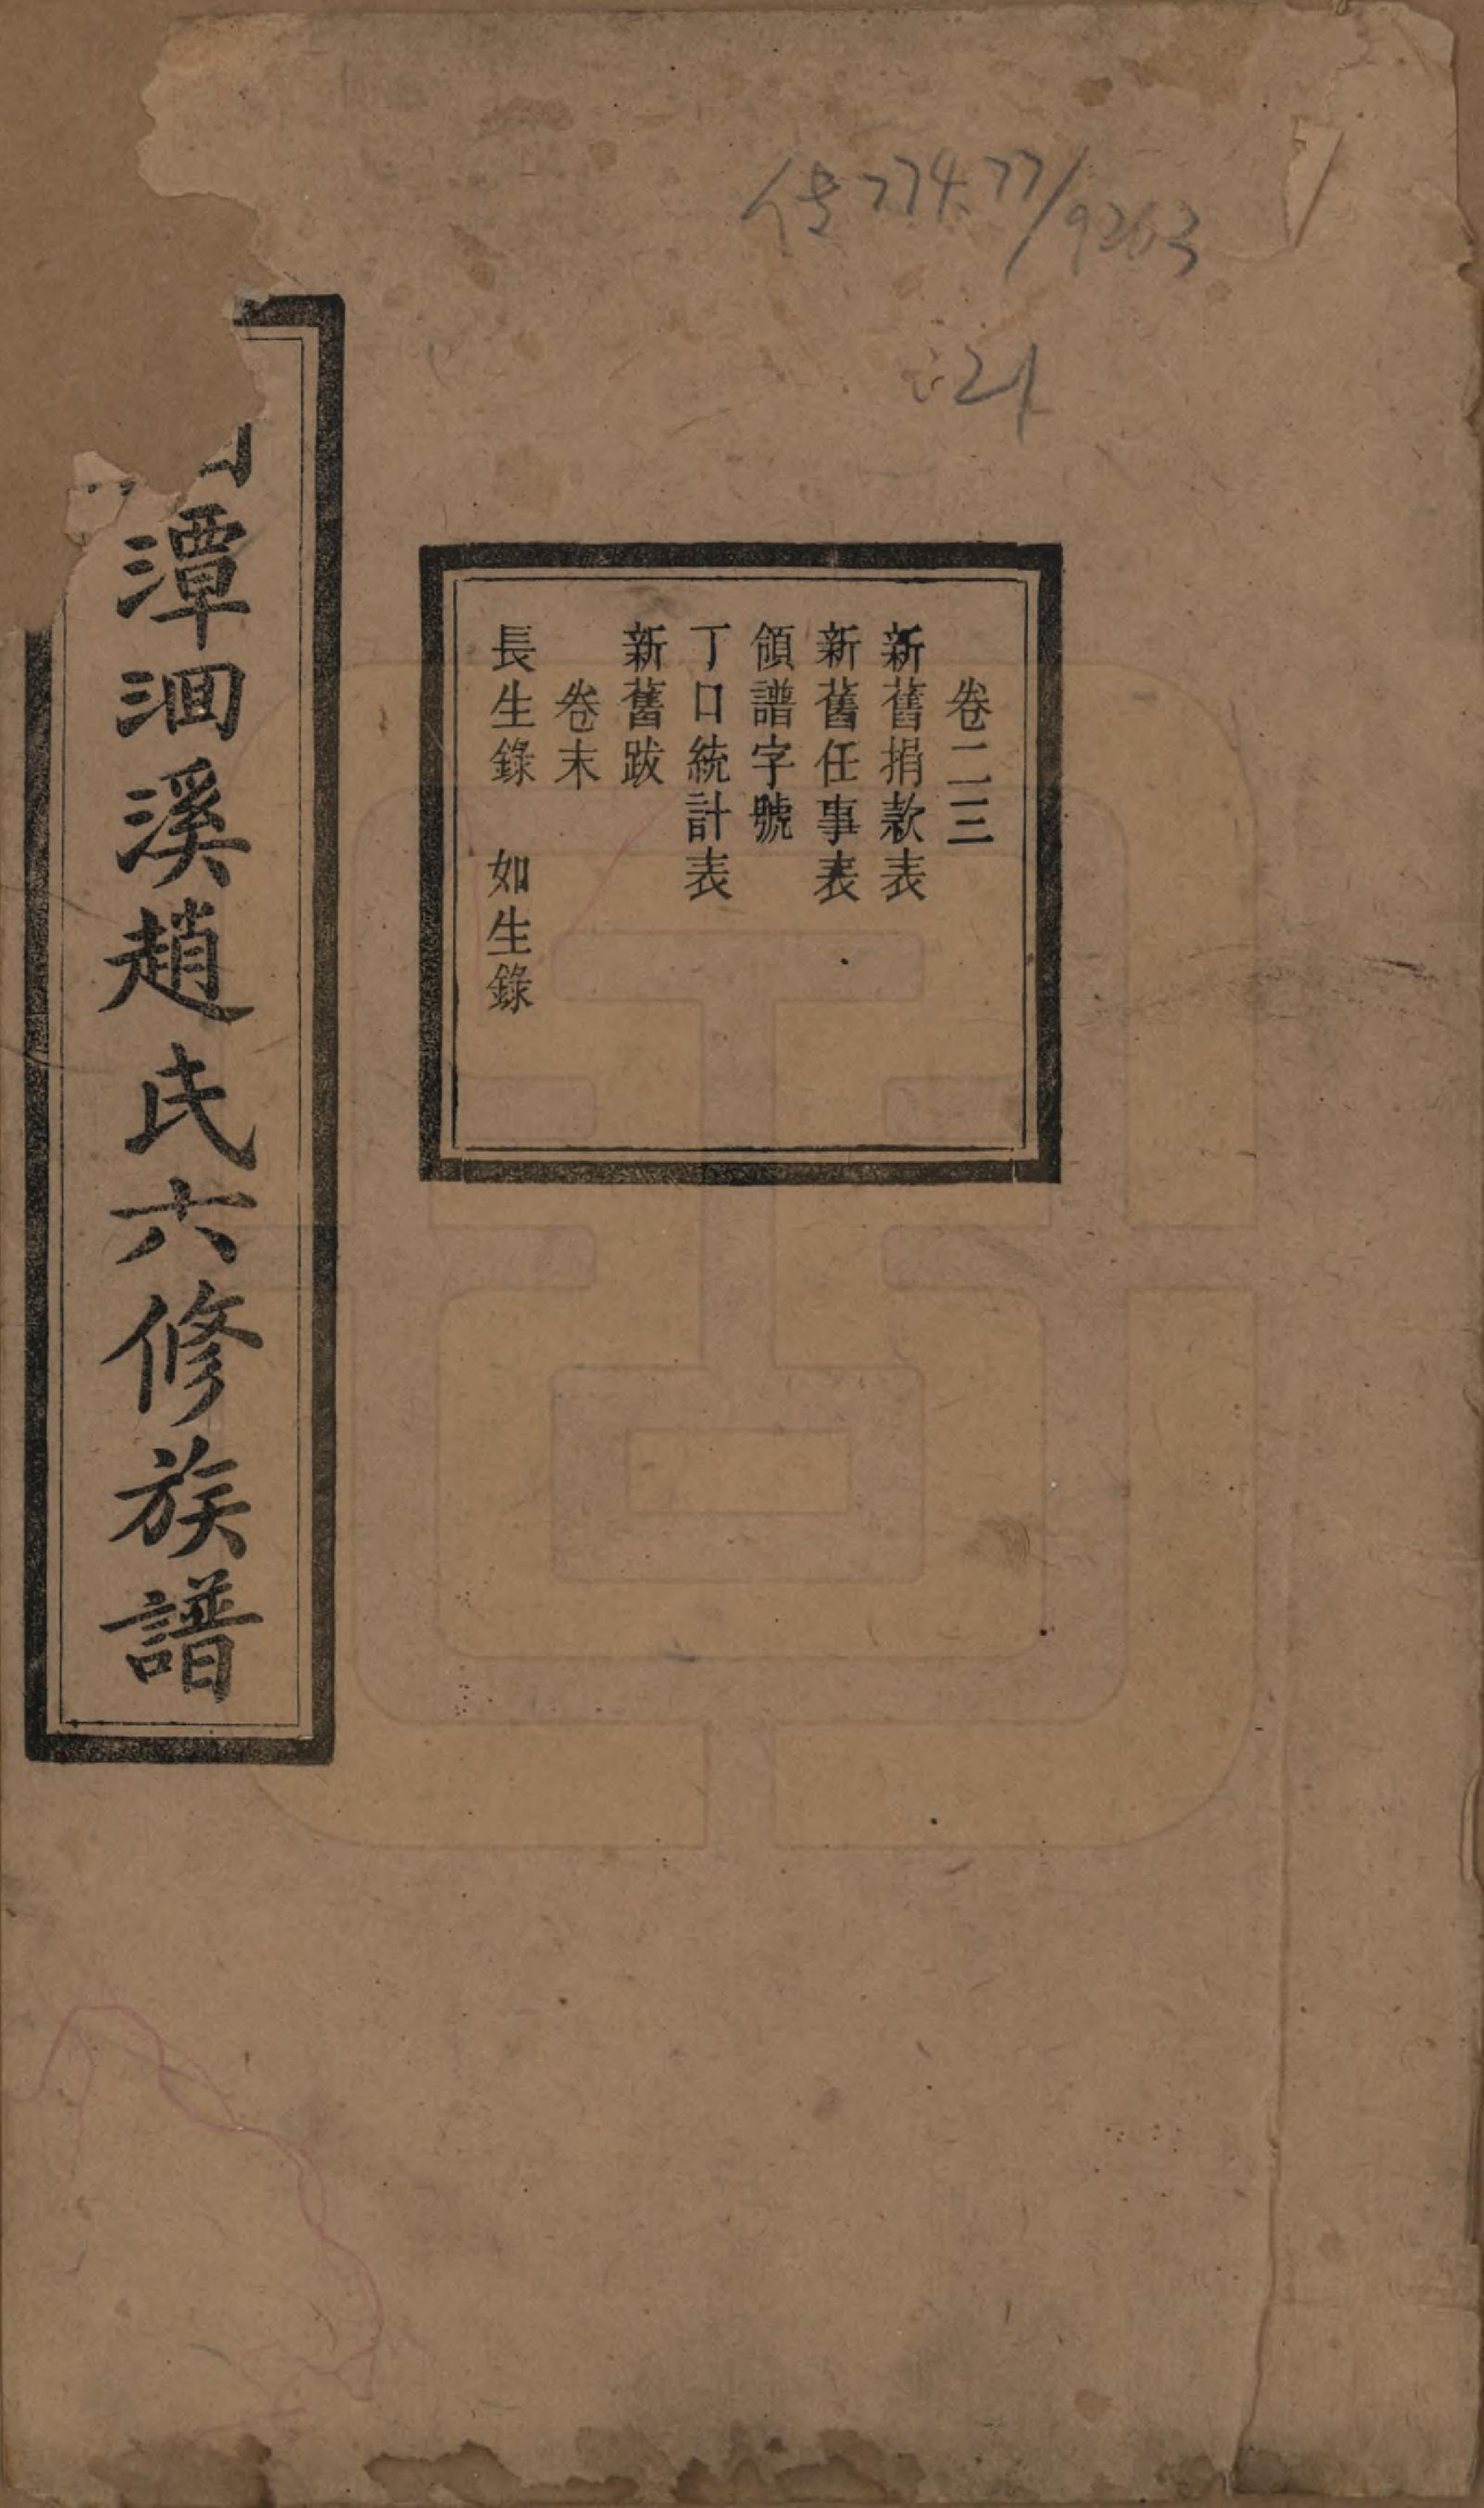 传774.77/9263
:21
卷二三
新舊捐款表
新舊任事表
領譜字號
丁口統計表
新舊跋
卷末
長生錄 如生錄
潭泗溪趙氏六修族譜